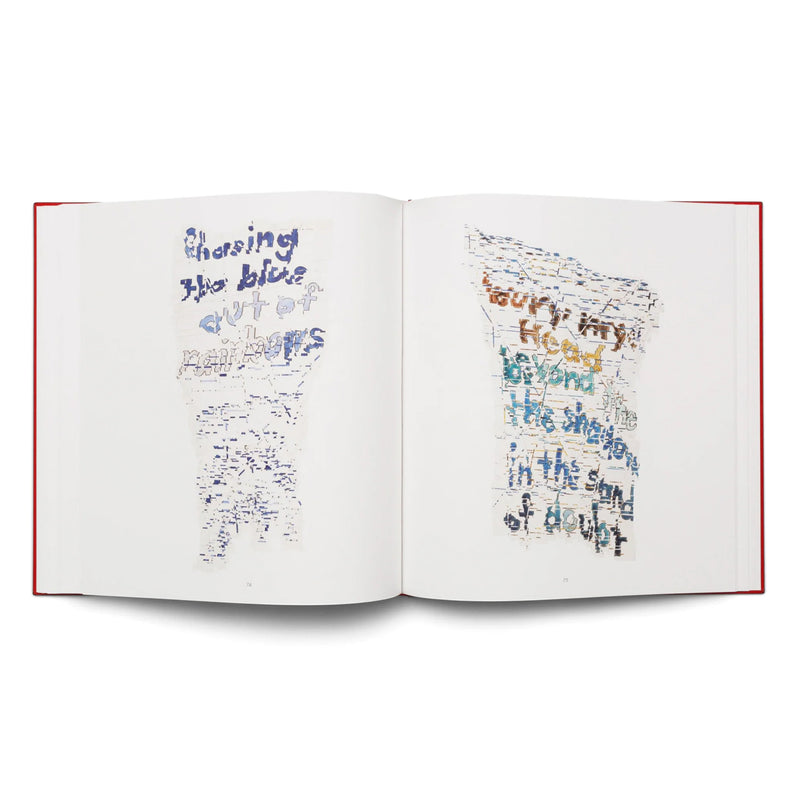 Chasing
the blue
out of
rainbows
74
bury my
Head
beyond the
the shadows
in the sand
of doubt
75